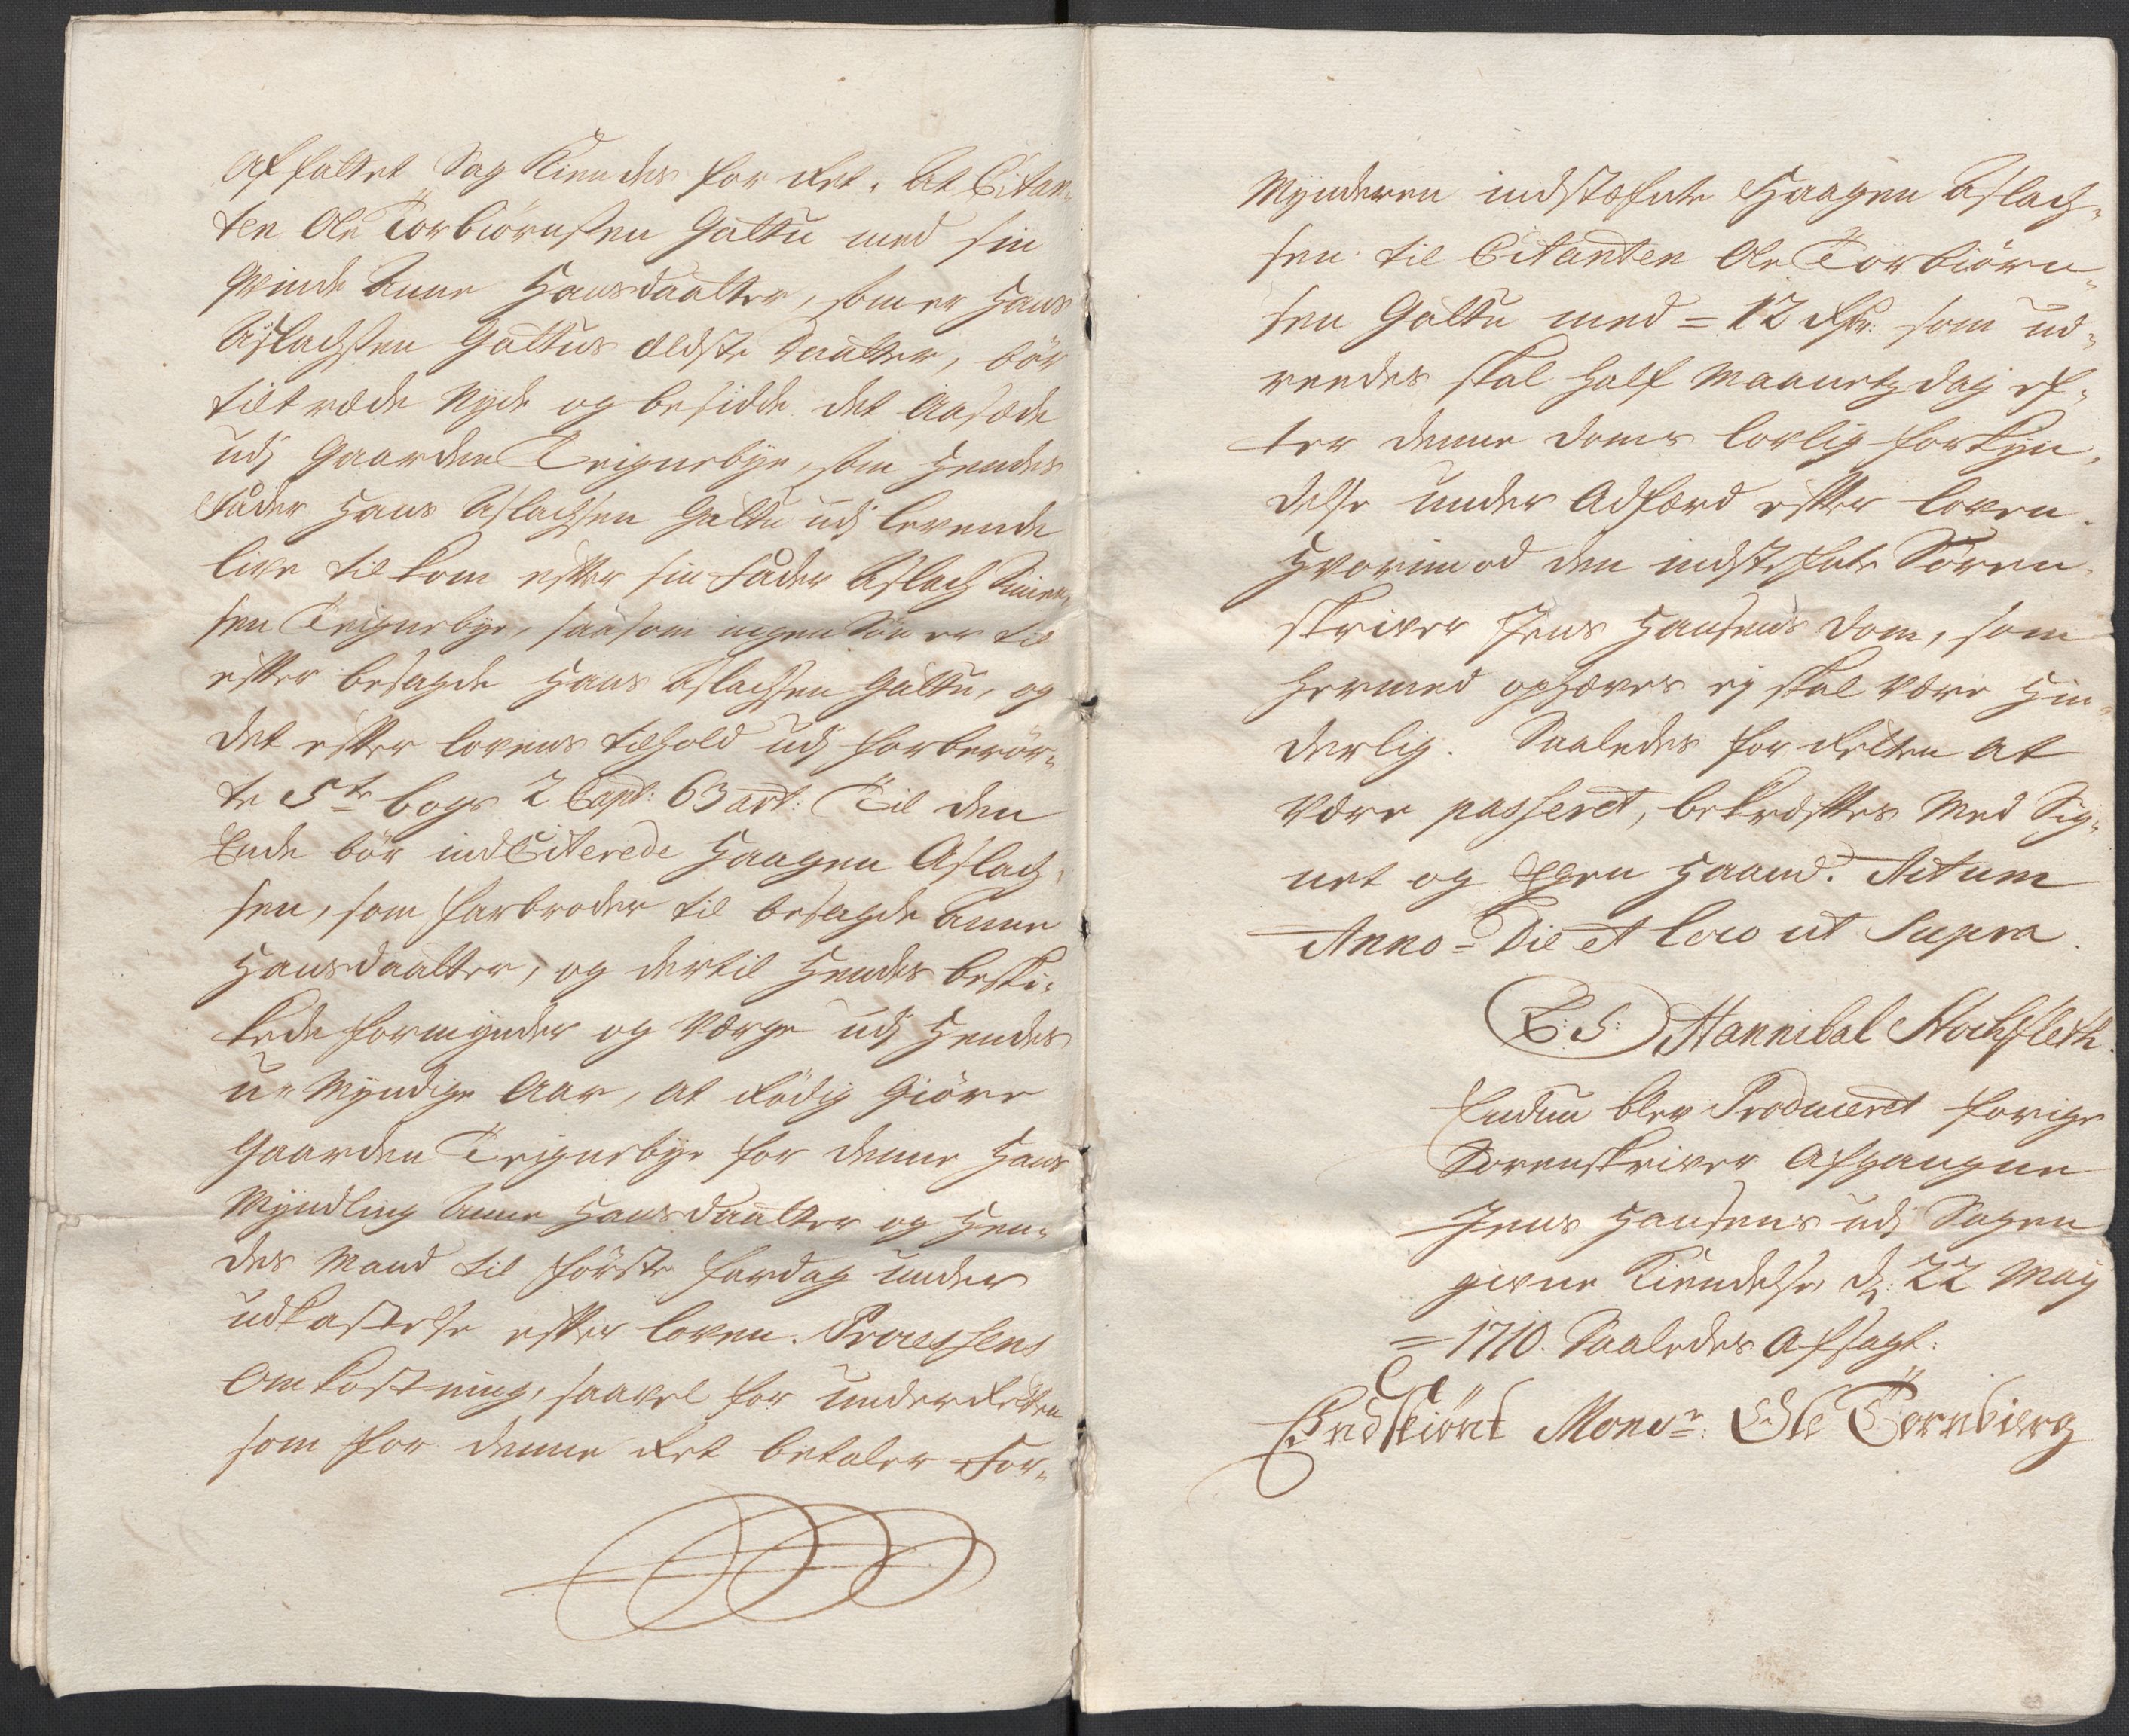 affattet Sag Kiendes for Ret. At Citan-
ten Ole Torbiörnssen Galtu med sin
qvinde Anne Hansdaatter, som er Hans
Aslachsens Galtus ældste daatter, bör
tiltræde Nyde og besidde det Aasæde
udj Gaarden Teignebye, som Hendes
Fader Hans Aslachsen Galtu udj levende
live tilkom efter sin Fader Aslach
sen Teignebye, saasom ingen Sön er til
efter besagde Hans Aslachsen Galtu, og
det efter lovens tilhold udj forberör-
te 5te bogs 2 Capt: 63 art: Til den
Ende bör indCiterede Haagen Aslach-
sen, som farbroder til besagde Anne
Hansdaatter, og dertil Hendes beski-
kede formynder og Værge udj Hendes
u-Myndige Aar, at Rödig Giöre
Gaarden Teignebye for denne Hans
Myndling Anne Hansdaatter og Hen-
des Mand til förste fardag under
udkastelse efter loven. Processens
Omkostning, saavel for underRetten
som for denne Ret betaler For-
Mynderen indstefnte Haagen Aslach-
sen til Citanten Ole Torbiörn-
sen Galtu med = 12 Rdr. som ud-
reedes skal half Maanetz dag ef-
ter denne doms lovlig forkyn-
delse under Adfærd efter loven.
Hvorimod den indstefnte Sören-
skriver Jens Hansens dom, som
Hermed ophæves ej skal være Hin-
derlig. Saaledes for Retten at
være passeret, bekræftes med Sig-
net og Egen Haand. Actum
Anno = Die et loco ut Supra.
L: S: Hannibal Stochfleth.
Endnu blev Produceret forrige
Sorenskriver afgangne
Jens Hansens udj Sagen
givne Kiendelse d: 22 Maij
= 1710. Saaledes afsagt:
Endskiönt Monsr: Ole Törnbierg